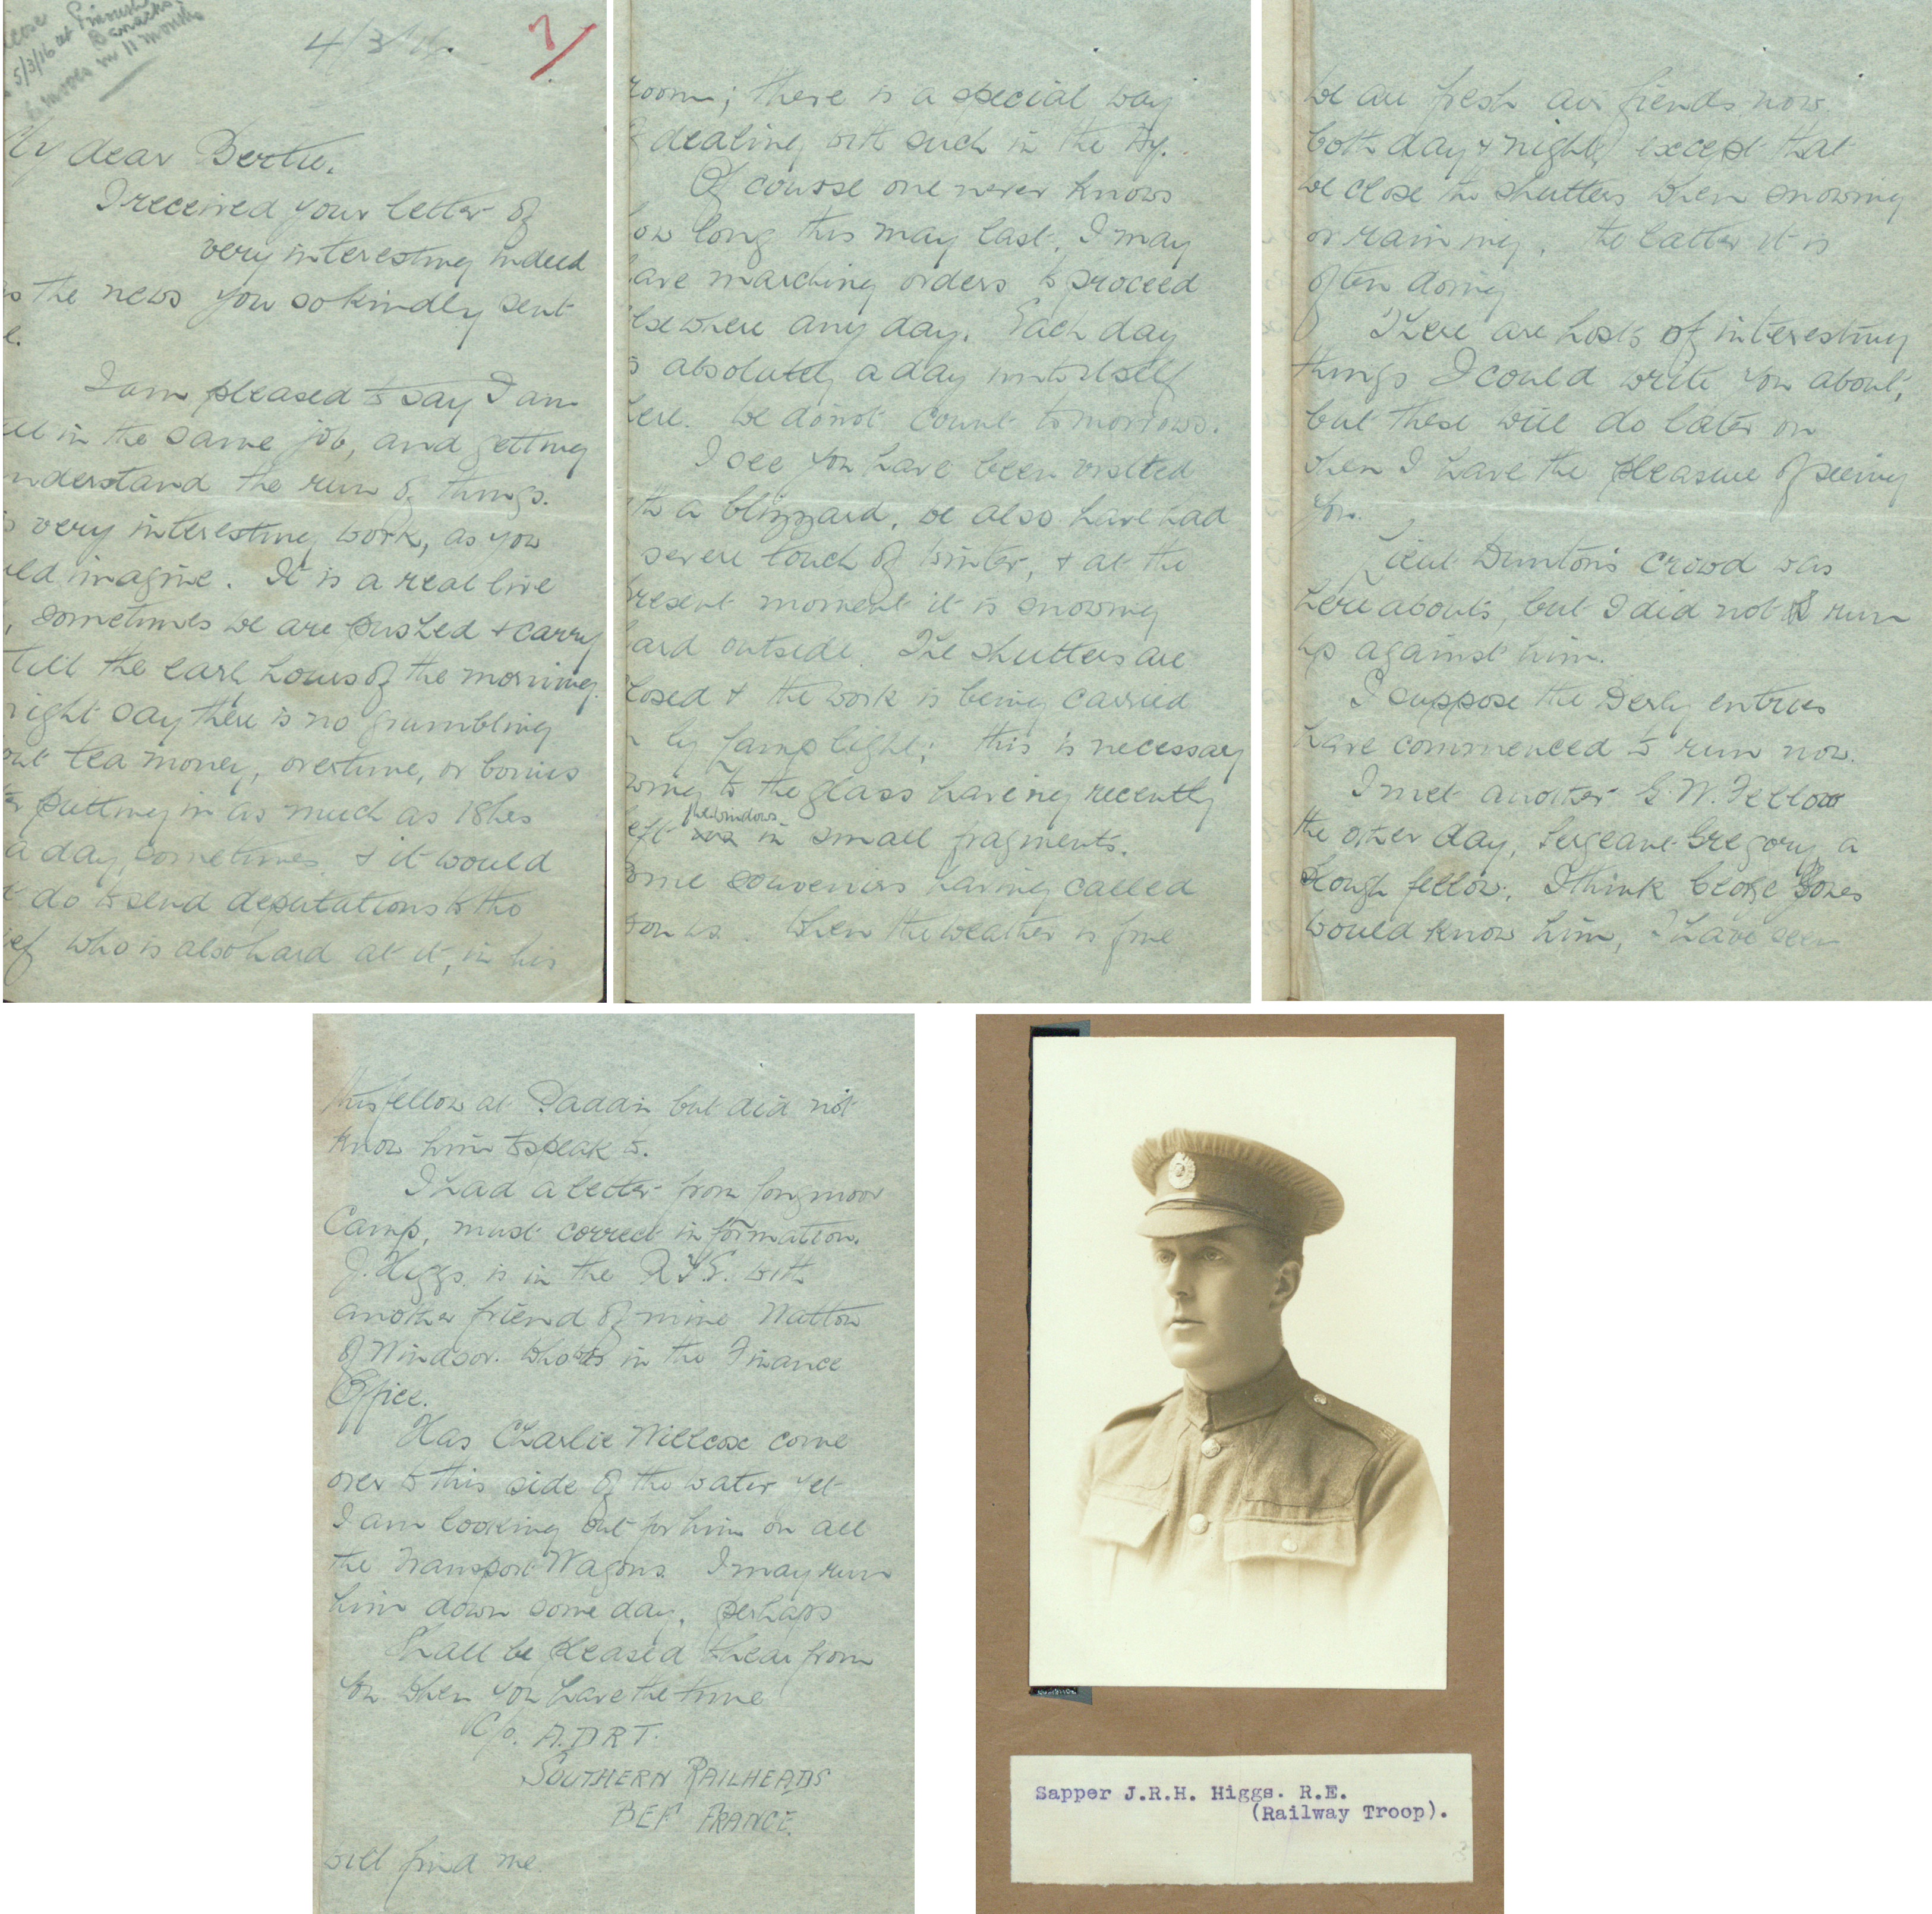 5/3/16 at
Barracks
moves in 11 months
4/3/16.
My dear Bertie.
I received your letter of
very interesting indeed
the news you so kindly sent
I am pleased to say I am
in the same job, and getting
understand the run of things.
very interesting work, as you
imagine. It is a real live
, sometimes we are pushed & carry
till the earl hours of the morning.
might say there is no grumbling
tea money, overtime, or bonus
putting in as much as 18 hrs
a day, sometimes & it would
do to send deputations to the
who is also hard at it, in his
room; there is a special way
dealing with such in the Ay.
Of course one never knows
how long this may last. I may
have marching orders to proceed
elsewhere any day. Each day
absolutely a day unto itself
here. We do not count tomorrows.
I see you have been visited
with a blizzard, we also have had
severe touch of winter, & at the
present moment it is snowing
hard outside. The shutters are
closed & the work is being carried
by lamp light; this is necessary
owing to the glass having recently
left the windows in small fragments.
Some souvenirs having called
on us. When the weather is fine
we are fresh air fiends now.
both day & night, except that
we close the shutters when snowing
or raining, the latter it is
often doing.
There are hosts of interesting
things I could write you about,
but these will do later on
when I have the pleasure of seeing
you.
Lieut Dunton's crowd was
hereabouts, but I did not run
up against him.
I suppose the Derby entries
have commenced to run now.
I met another G.W. Fellow
the other day, Sergeant Gregory, a
Slough fellow, I think George Jones
would know him, I have seen
this fellow at Paddn but did not
know him to speak to.
I had a letter from Longmoor
Camp, must correct information.
J. Higgs. is in the R.E. with
another friend of mine Watton
of Windsor. Who is in the Finance
Office.
Has Charlie Willcox come
over to this side of the water yet
I am looking out for him on all
the Transport Wagons. I may run
him down some day. perhaps
Shall be pleased to hear from
you when you have the time
C/o. A.D.R.T.
SOUTHERN RAILHEADS
BEF FRANCE.
will find me.
Sapper J.R.H. Higgs. R.E.
(Railway Troop).